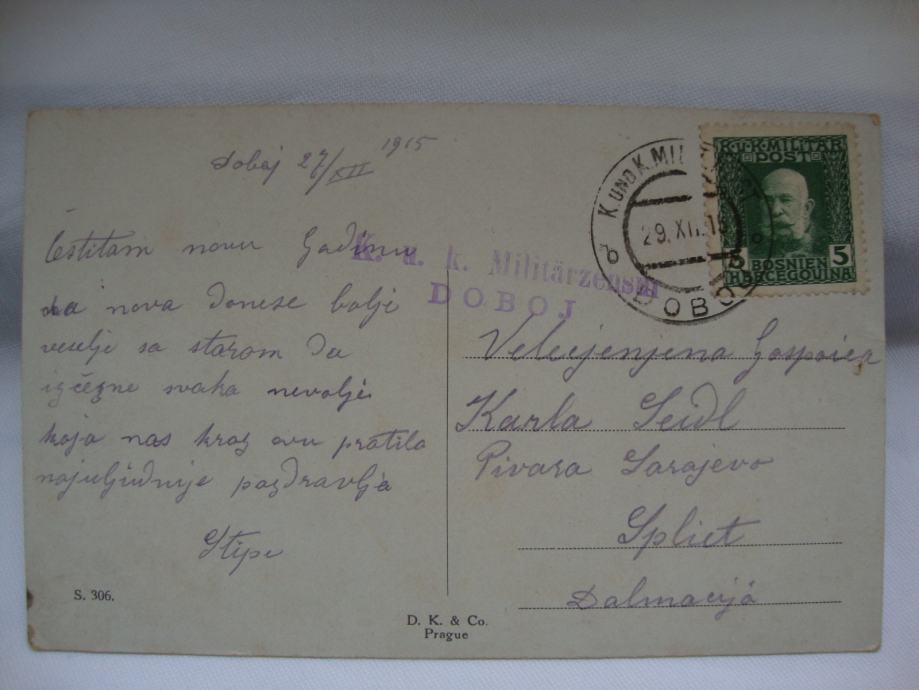 Doboj 27/XII 1915
Čestitam novu Godinu
da nova donese bolje
veselje sa starom da
izčezne svaka nevolje
koja nas kroz ovu pratila
najuljudnije pozdravlja
Stipe
S. 306.
D. K. & Co.
Prague
K. u. k. Militärzensur
DOBOJ
K. UND K. MIL
29.XII.15
b b
DOBOJ
K.u.K. MILITÄR
POST
5 5
BOSNIEN
HERCEGOVINA
Velecjenjena
Karla Seidl
Pivara Sarajevo
Spliet
Dalmacija